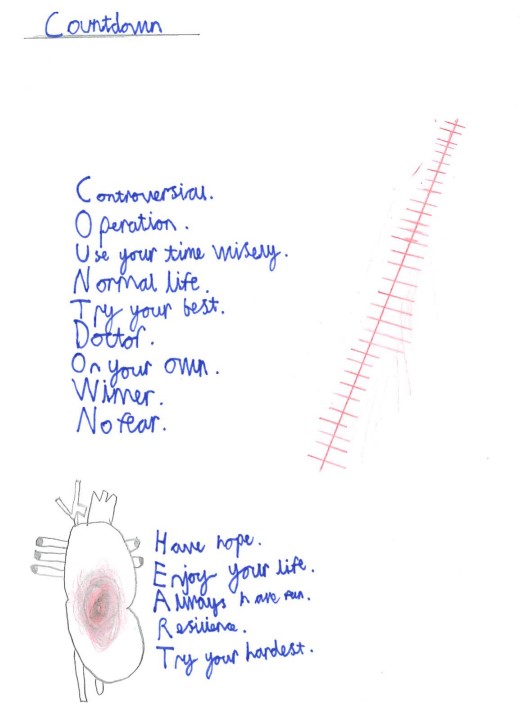 Countdown
Controversial.
Operation.
Use your time wisely.
Normal life.
Try your best.
Doctor.
On your own.
Winner.
No fear.
Have hope.
Enjoy your life.
Always have fun.
Resilience.
Try your hardest.